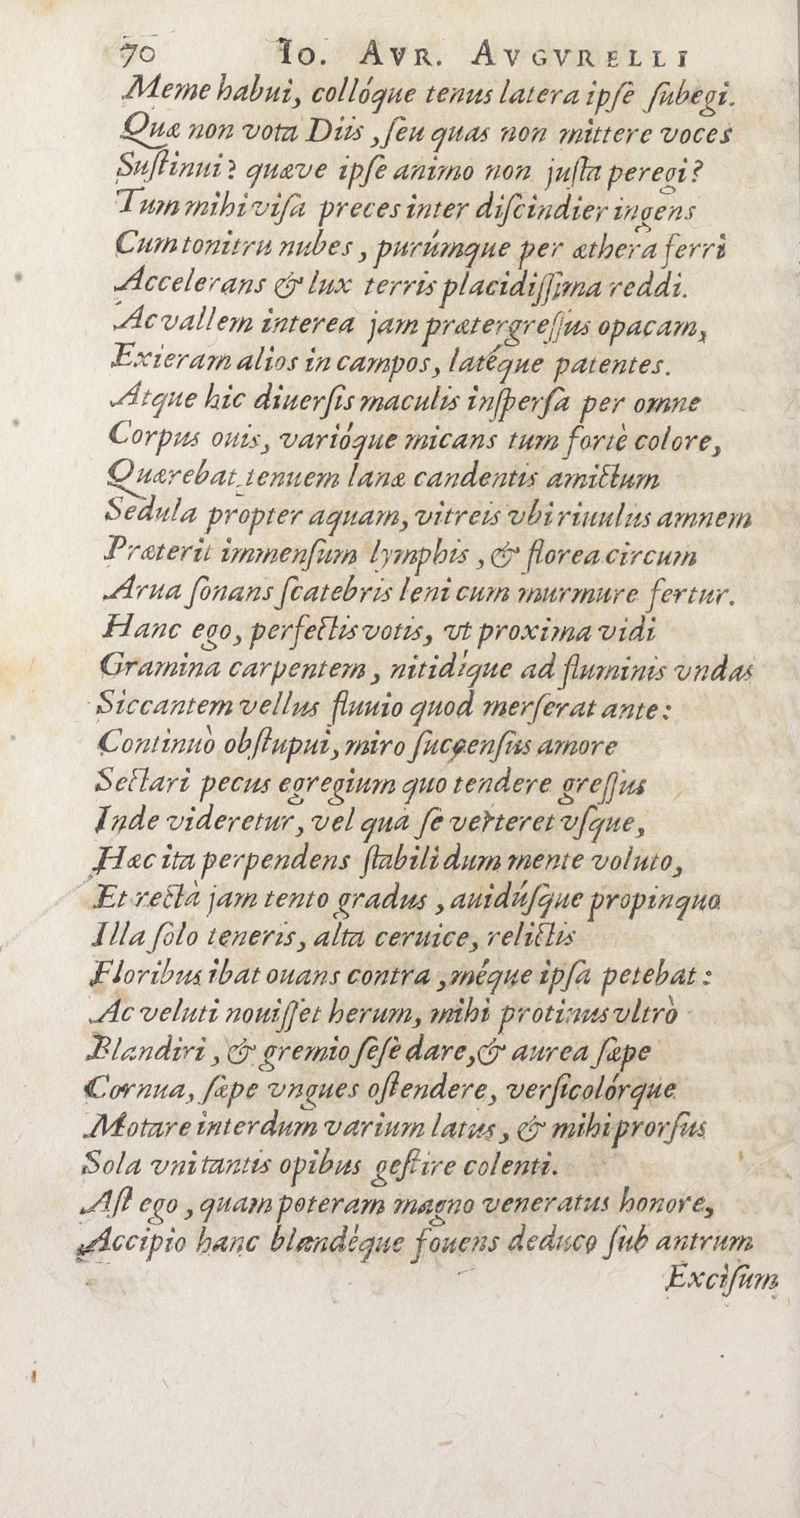 70 Io. AVR. AVGVRELLI
Meme habui, collóque tenus latera ipſe ſubegi.
Quæ non vota Diis, ſeu quas non mittere voces
Suſtinui? quæve ipſe animo non juſta peregi?
Tum mihi viſa preces inter diſcindier ingens
Cum tonitru nubes, purúmque per æthera ferri
Accelerans & lux terris placidiſſima reddi.
Ac vallem interea jam prætergreſſus opacam,
Exieram alios in campos, latéque patentes.
Atque hic diuerſis maculis inſperſa per omne
Corpus ouis, varióque micans tum fortè colore,
Quærebat tenuem lanæ candentis amictum
Sedula propter aquam, vitreis vbi riuulus amnem
Præterit immenſum lymphis, & florea circum
Arua ſonans ſcatebris leni cum murmure fertur.
Hanc ego, perfectis votis, vt proxima vidi
Gramina carpentem, nitidíque ad fluminis vndas
Siccantem vellus fluuio quod merſerat ante:
Continuò obſtupui, miro ſuccenſus amore
Sectari pecus egregium quo tendere greſſus
Inde videretur, vel quà ſe verteret vſque,
Hæc ita perpendens ſtabili dum mente voluto,
Et rectà jam tento gradus, auidúſque propinquo
Illa ſolo teneris, alta ceruice, relictis
Floribus ibat ouans contra, méque ipſa petebat:
Ac veluti nouiſſet herum, mihi protinus vltrò
Blandiri, & gremio ſeſe dare, & aurea ſæpe
Cornua, ſæpe vngues oſtendere, verſicolórque
Motare interdum varium latus, & mihi prorſus
Sola vnitantis opibus geſtire colenti.
Aſt ego, quam poteram magno veneratus honore,
Accipio hanc blandéque fouens deduco ſub antrum
Exciſum